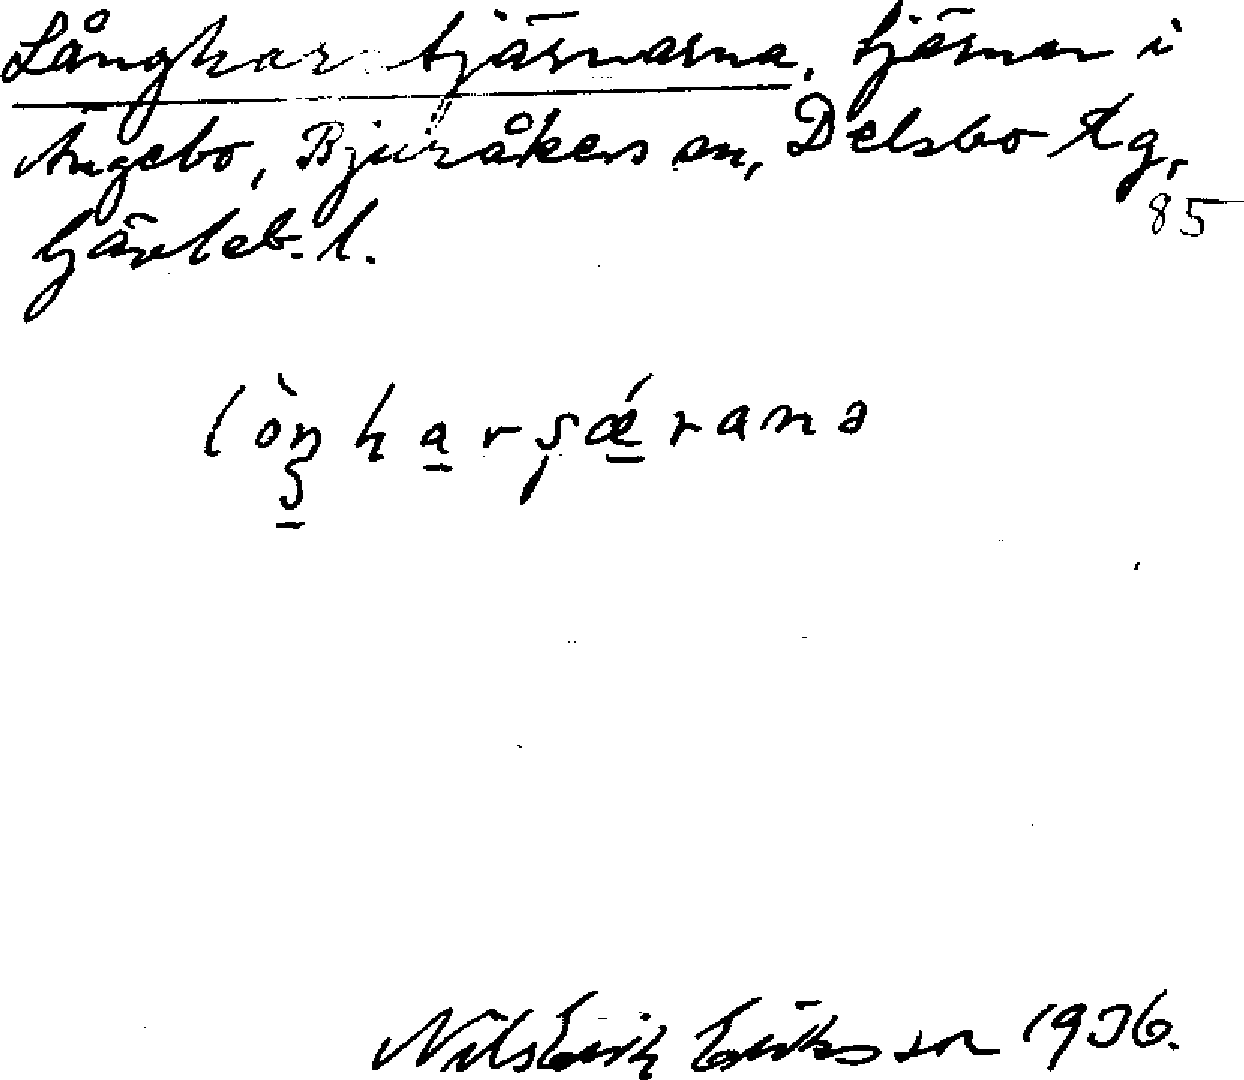 Långhartjärnarna, tjärnar i
Ängebo, Bjuråkers sn, Delsbo tg,
85
Gävleb. l.
lòŋharʂǽrana
Nils Erik Eriksson 1936.